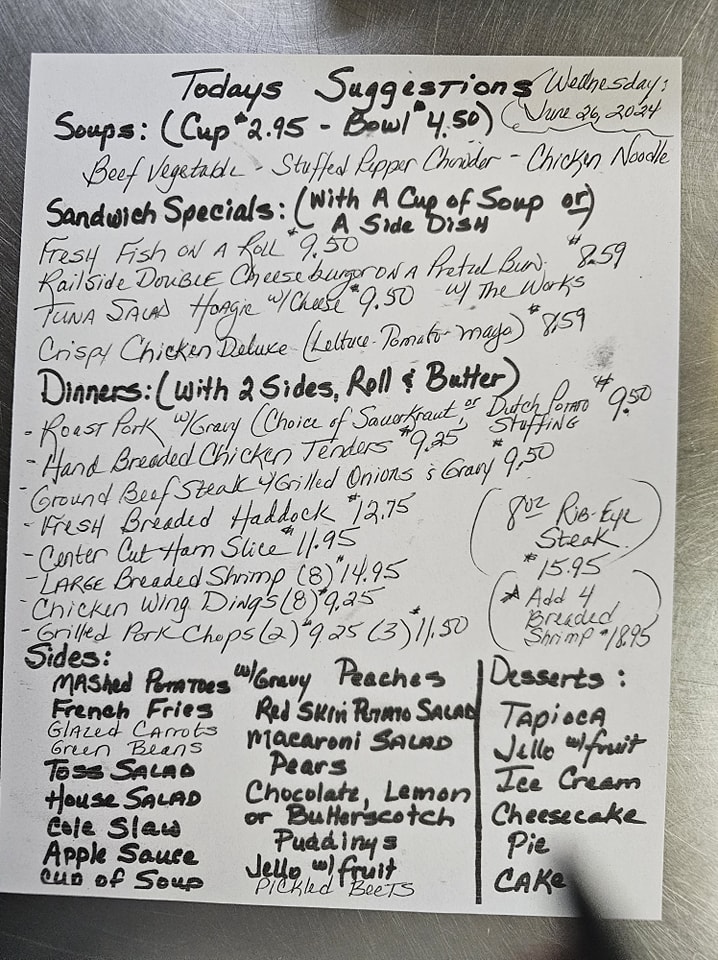 Todays Suggestions
Wednesday:
June 26, 2024
Soups: (Cup $2.95 - Bowl $4.50)
Beef Vegetable - Stuffed Pepper Chowder - Chicken Noodle
Sandwich Specials: (With A Cup of Soup or)
A Side Dish
Fresh Fish on A Roll $9.50
Railside Double Cheeseburger on A Pretzel Bun. $8.59
w/ The Works
Tuna Salad Hoagie w/ Cheese $9.50
Crispy Chicken Deluxe (Lettuce-Tomato-mayo) $8.59
Dinners: (With 2 Sides, Roll & Butter)
- Roast Pork w/Gravy (Choice of Sauerkraut, or Dutch Potato $9.50
Stuffing
- Hand Breaded Chicken Tenders $9.25
- Ground Beef Steak w/Grilled Onions & Gravy $9.50
- Fresh Breaded Haddock $12.75
- Center Cut Ham Slice $11.95
- Large Breaded Shrimp (8) $14.95
- Chicken Wing Dings (8) $9.25
- Grilled Pork Chops (2) $9.25 (3) $11.50
8oz Rib-Eye
Steak
$15.95
* Add 4
Breaded
Shrimp $18.95
Sides:
Mashed Potatoes w/Gravy
French Fries
Glazed Carrots
Green Beans
Toss Salad
House Salad
Cole Slaw
Apple Sauce
Cup of Soup
Peaches
Red Skin Potato Salad
Macaroni Salad
Pears
Chocolate, Lemon
or Butterscotch
Puddings
Jello w/fruit
Pickled Beets
Desserts:
Tapioca
Jello w/fruit
Ice Cream
Cheesecake
Pie
Cake